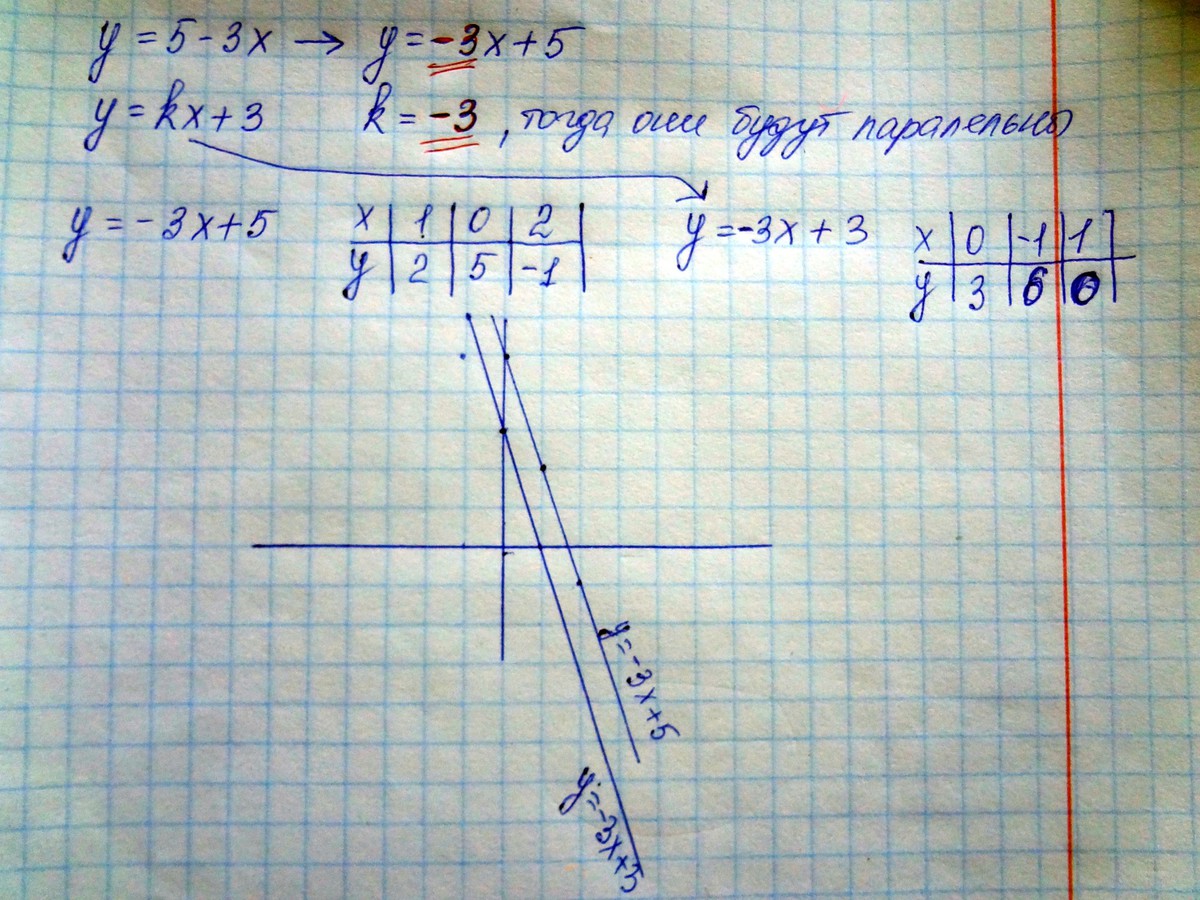 y = 5 - 3x → y = -3x + 5
y = kx + 3 k = -3 , тогда они будут паралельны
y = -3x + 5 x | 1 | 0 | 2 | y = -3x + 3 x | 0 | -1 | 1 |
y | 2 | 5 | -1 | y | 3 | 6 | 0 |
y = -3x + 5
y = -3x + 3